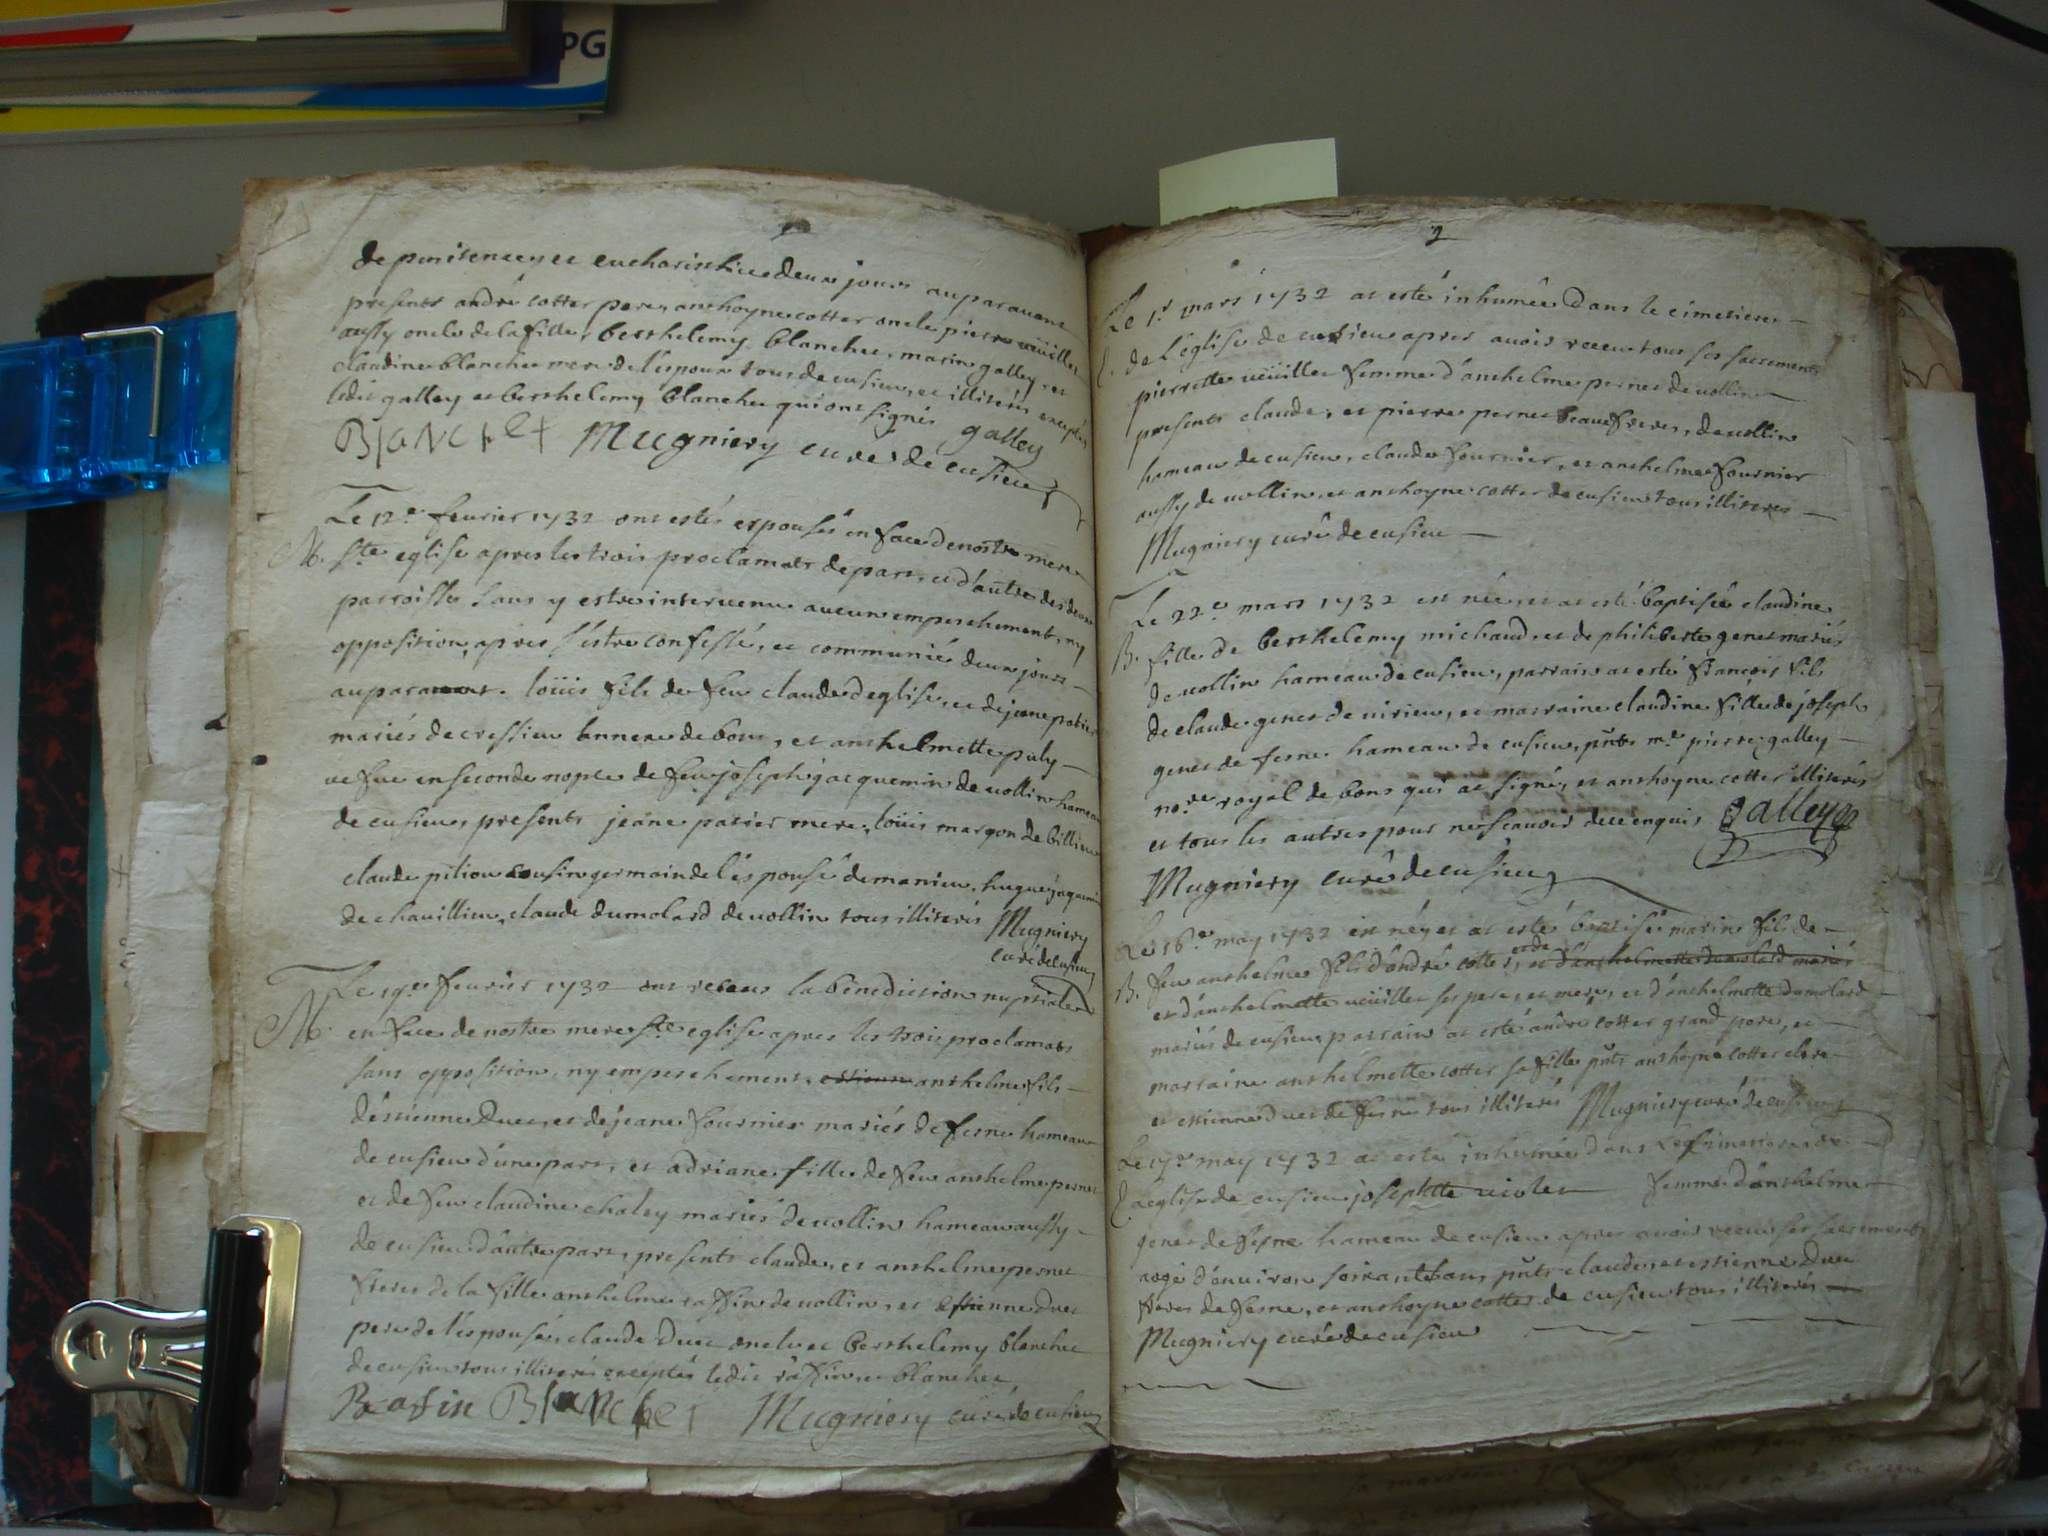 PG
de penitence, et eucharistie deux jours auparavant
presents andré cotter pere, anthoyne cotter oncle pierre veüillet
aussy oncle de la fille, berthelemy blanchet, marin galley, et
claudine blanchet mere de l'espoux tous de cusieu, et illiterés exceptés
ledit galley et berthelemy blanchet qui ont signés galley
BlaNchet Mugniery curé de cusieu
Le 12e feurier 1732 ont estés espousés en face de nostre mere
M. ste eglise apres les trois proclamats de part, et d'autre des deux
parroisses sans y estre intervenu aucun empeschement, ny
opposition, apres s'estre confessé, et communié deux jours
auparavant. loüis fils de feu claude deglise, et de jeane patier
mariés de cressieu annexe de bons, et anthelmette puly
vefue en seconde nopce de feu joseph jacquemin de uollin hameau
de cusieu, presents jeane patier mere, loüis marqon de billieu
claude pilion cousin germain de l'espousé de manieu, hugue jaquemin
de chauillieu, claude dumolard de uollin tous illiterés Mugniery
curé de cusieu
Le 19e feurier 1732 ont receus la bénédiction nuptiale
M. en face de nostre mere ste eglise apres les trois proclamats
sans opposition, ny empeschement, anthelme fils
d'estienne Duc, et de jeane fournier mariés de fesne hameau
de cusieu d'une part, et adriane fille de feu anthelme pernet
et de feu claudine chaley mariés de uollin hameau aussy
de cusieu d'autre part, presents claude, et anthelme pernet
freres de la fille anthelme raffin de uollin, et estienne duc
pere de l'espousé, claude Duc oncle et berthelemy blanchet
de cusieu tous illiterés exceptés ledit raffin, et blanchet
Rafin BlaNchet Mugniery curé de cusieu
2
Le 1r mars 1732 at esté inhumée dans le cimetiere
de l'eglise de cusieu apres auoir receu tous ses sacrements
pierrette ueüillet femme d'anthelme pernet de uollin
presents claude, et pierre pernet beaux freres, de uollin
hameau de cusieu, claude fournier, et anthelme fournier
aussy de uollin, et anthoyne cotter de cusieu tous illiterés
Mugniery curé de cusieu
Le 22e mars 1732 est née, et at esté baptisée claudine
B. fille de berthelemy michaud, et de philiberte genet mariés
de uollin hameau de cusieu, parrain at esté françois fils
de claude genet de uirieu, et marraine claudine fille de joseph
genet de fesne hameau de cusieu, pnts me pierre galley
nore royal de bons qui at signé, et anthoyne cotter illiterés
et tous les autres pour ne scauoir de ce enquis Galley
Mugniery curé de cusieu
Le 16e may 1732 est né, et at esté baptisé marin fils de
B. feu anthelme fils d'andré cotter, et de et d'anthelmette dumolard mariés
et d'anthelmette ueüillet ses pere, et mere, et d'anthelmette dumolard
mariés de cusieu, parrain at esté andré cotter grand pere, et
marraine anthelmette cotter sa fille pnts anthoyne cotter clerc
et estienne duc de fesne tous illiterés Mugniery curé de cusieu
Le 17e may 1732 at esté inhumée dans le cimetiere de
l'eglise de cusieu josephtte uiolet femme d'anthelme
genet de fesne hameau de cusieu apres auoir receu ses sacrements
aagé d'enuiron soixante ans, pnts claude, et estienne Duc
freres de fesne, et anthoyne cotter de cusieu tous illiterés
Mugniery curé de cusieu